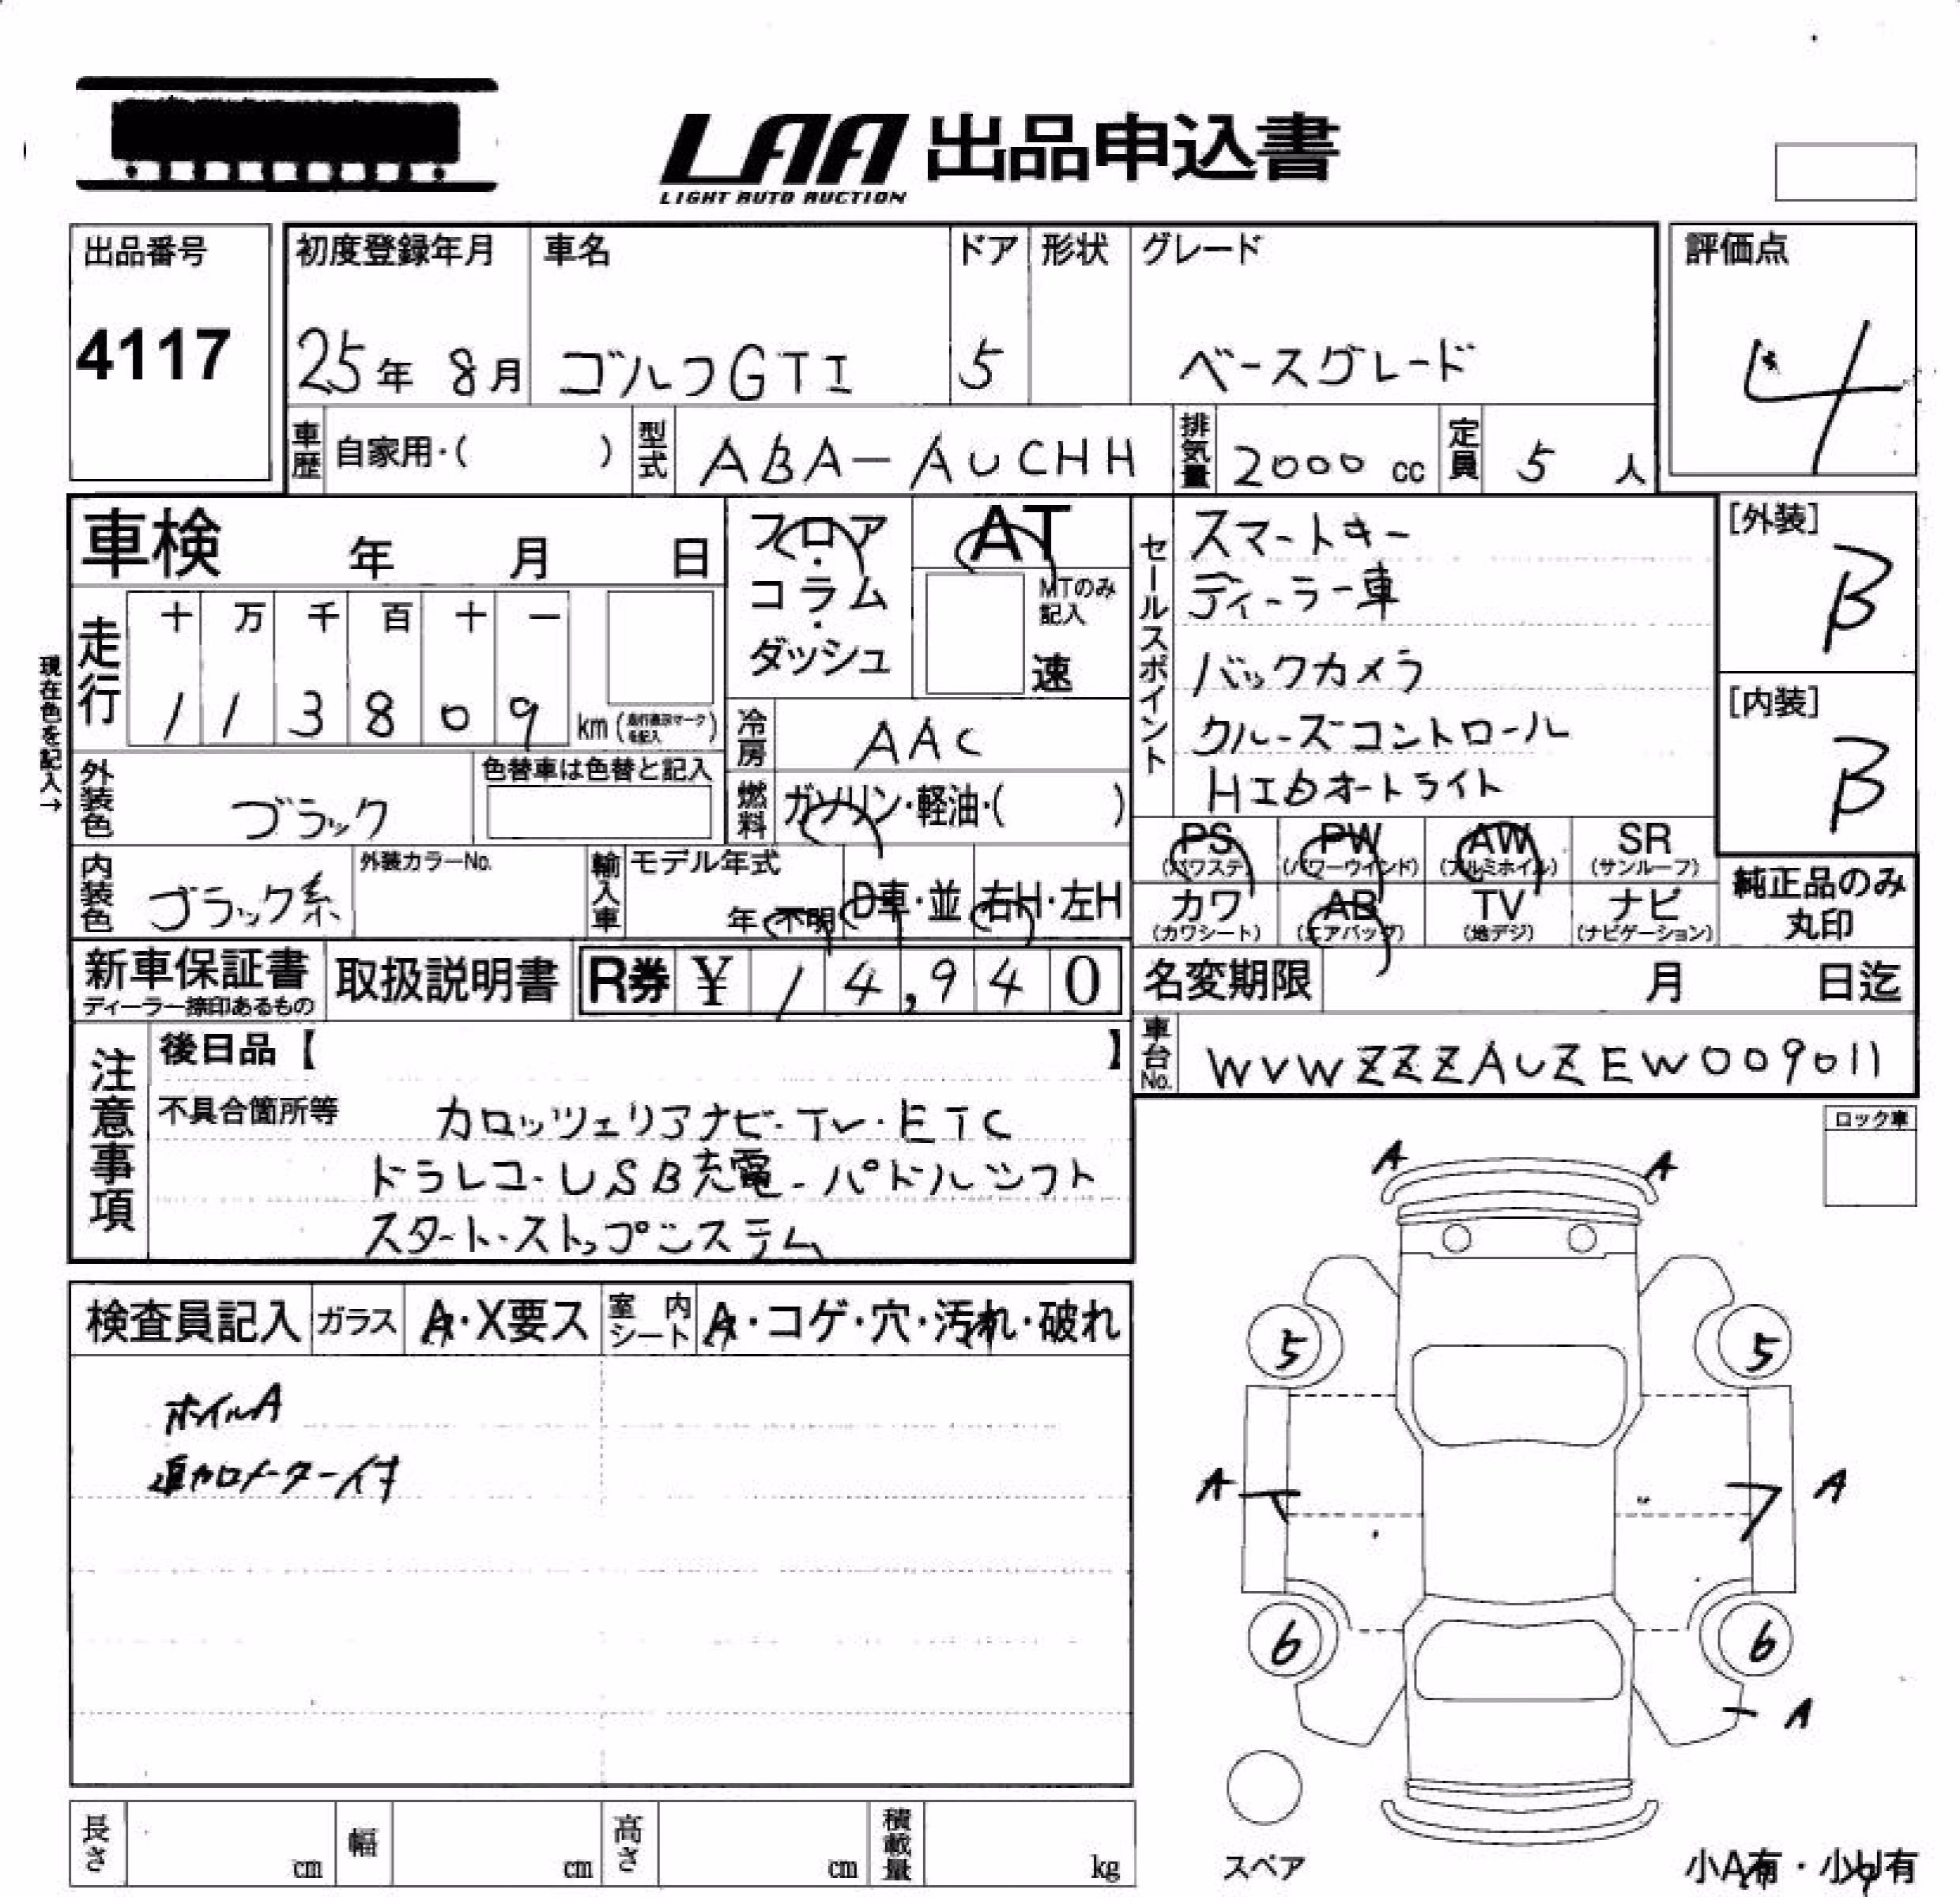 LAA 出品申込書
LIGHT AUTO AUCTION
出品番号
4117
初度登録年月
25年 8月
車名
ゴルフGTI
ドア
5
形状
グレード
ベースグレード
評価点
4
車歴 自家用・( )
型式 ABA-AUCHH
排気量 2000 cc
定員 5 人
車検 年 月 日
フロア・コラム・ダッシュ
AT
MTのみ記入
速
走行
十 万 千 百 十 一
1 1 3 8 0 9 km (走行表示マークを記入)
現在色を記入→
冷房 AAC
外装色 ブラック
色替車は色替と記入
燃料 ガソリン・軽油・( )
内装色 ブラック系
外装カラーNo.
輸入車 モデル年式
年 不明 D車・並 右H・左H
セールスポイント
スマートキー
ディーラー車
バックカメラ
クルーズコントロール
HIDオートライト
[外装]
B
[内装]
B
PS (パワステ) PW (パワーウィンド) AW (アルミホイル) SR (サンルーフ)
カワ (カワシート) AB (エアバッグ) TV (地デジ) ナビ (ナビゲーション)
純正品のみ丸印
新車保証書
ディーラー捺印あるもの
取扱説明書
R券 ¥ 14,940
名変期限 月 日迄
車台No. WVWZZZAUZEW009011
注意事項
後日品【 】
不具合箇所等
カロッツェリアナビ・TV・ETC
ドラレコ・USB充電・パドルシフト
スタート・ストップシステム
ロック車
検査員記入 ガラス A・X要ス 室内シート A・コゲ・穴・汚れ・破れ
ホイルA
追加メーター付
A A
5 5
A A
6 6
A
スペア
小A有・小U有
長さ cm 幅 cm 高さ cm 積載量 kg